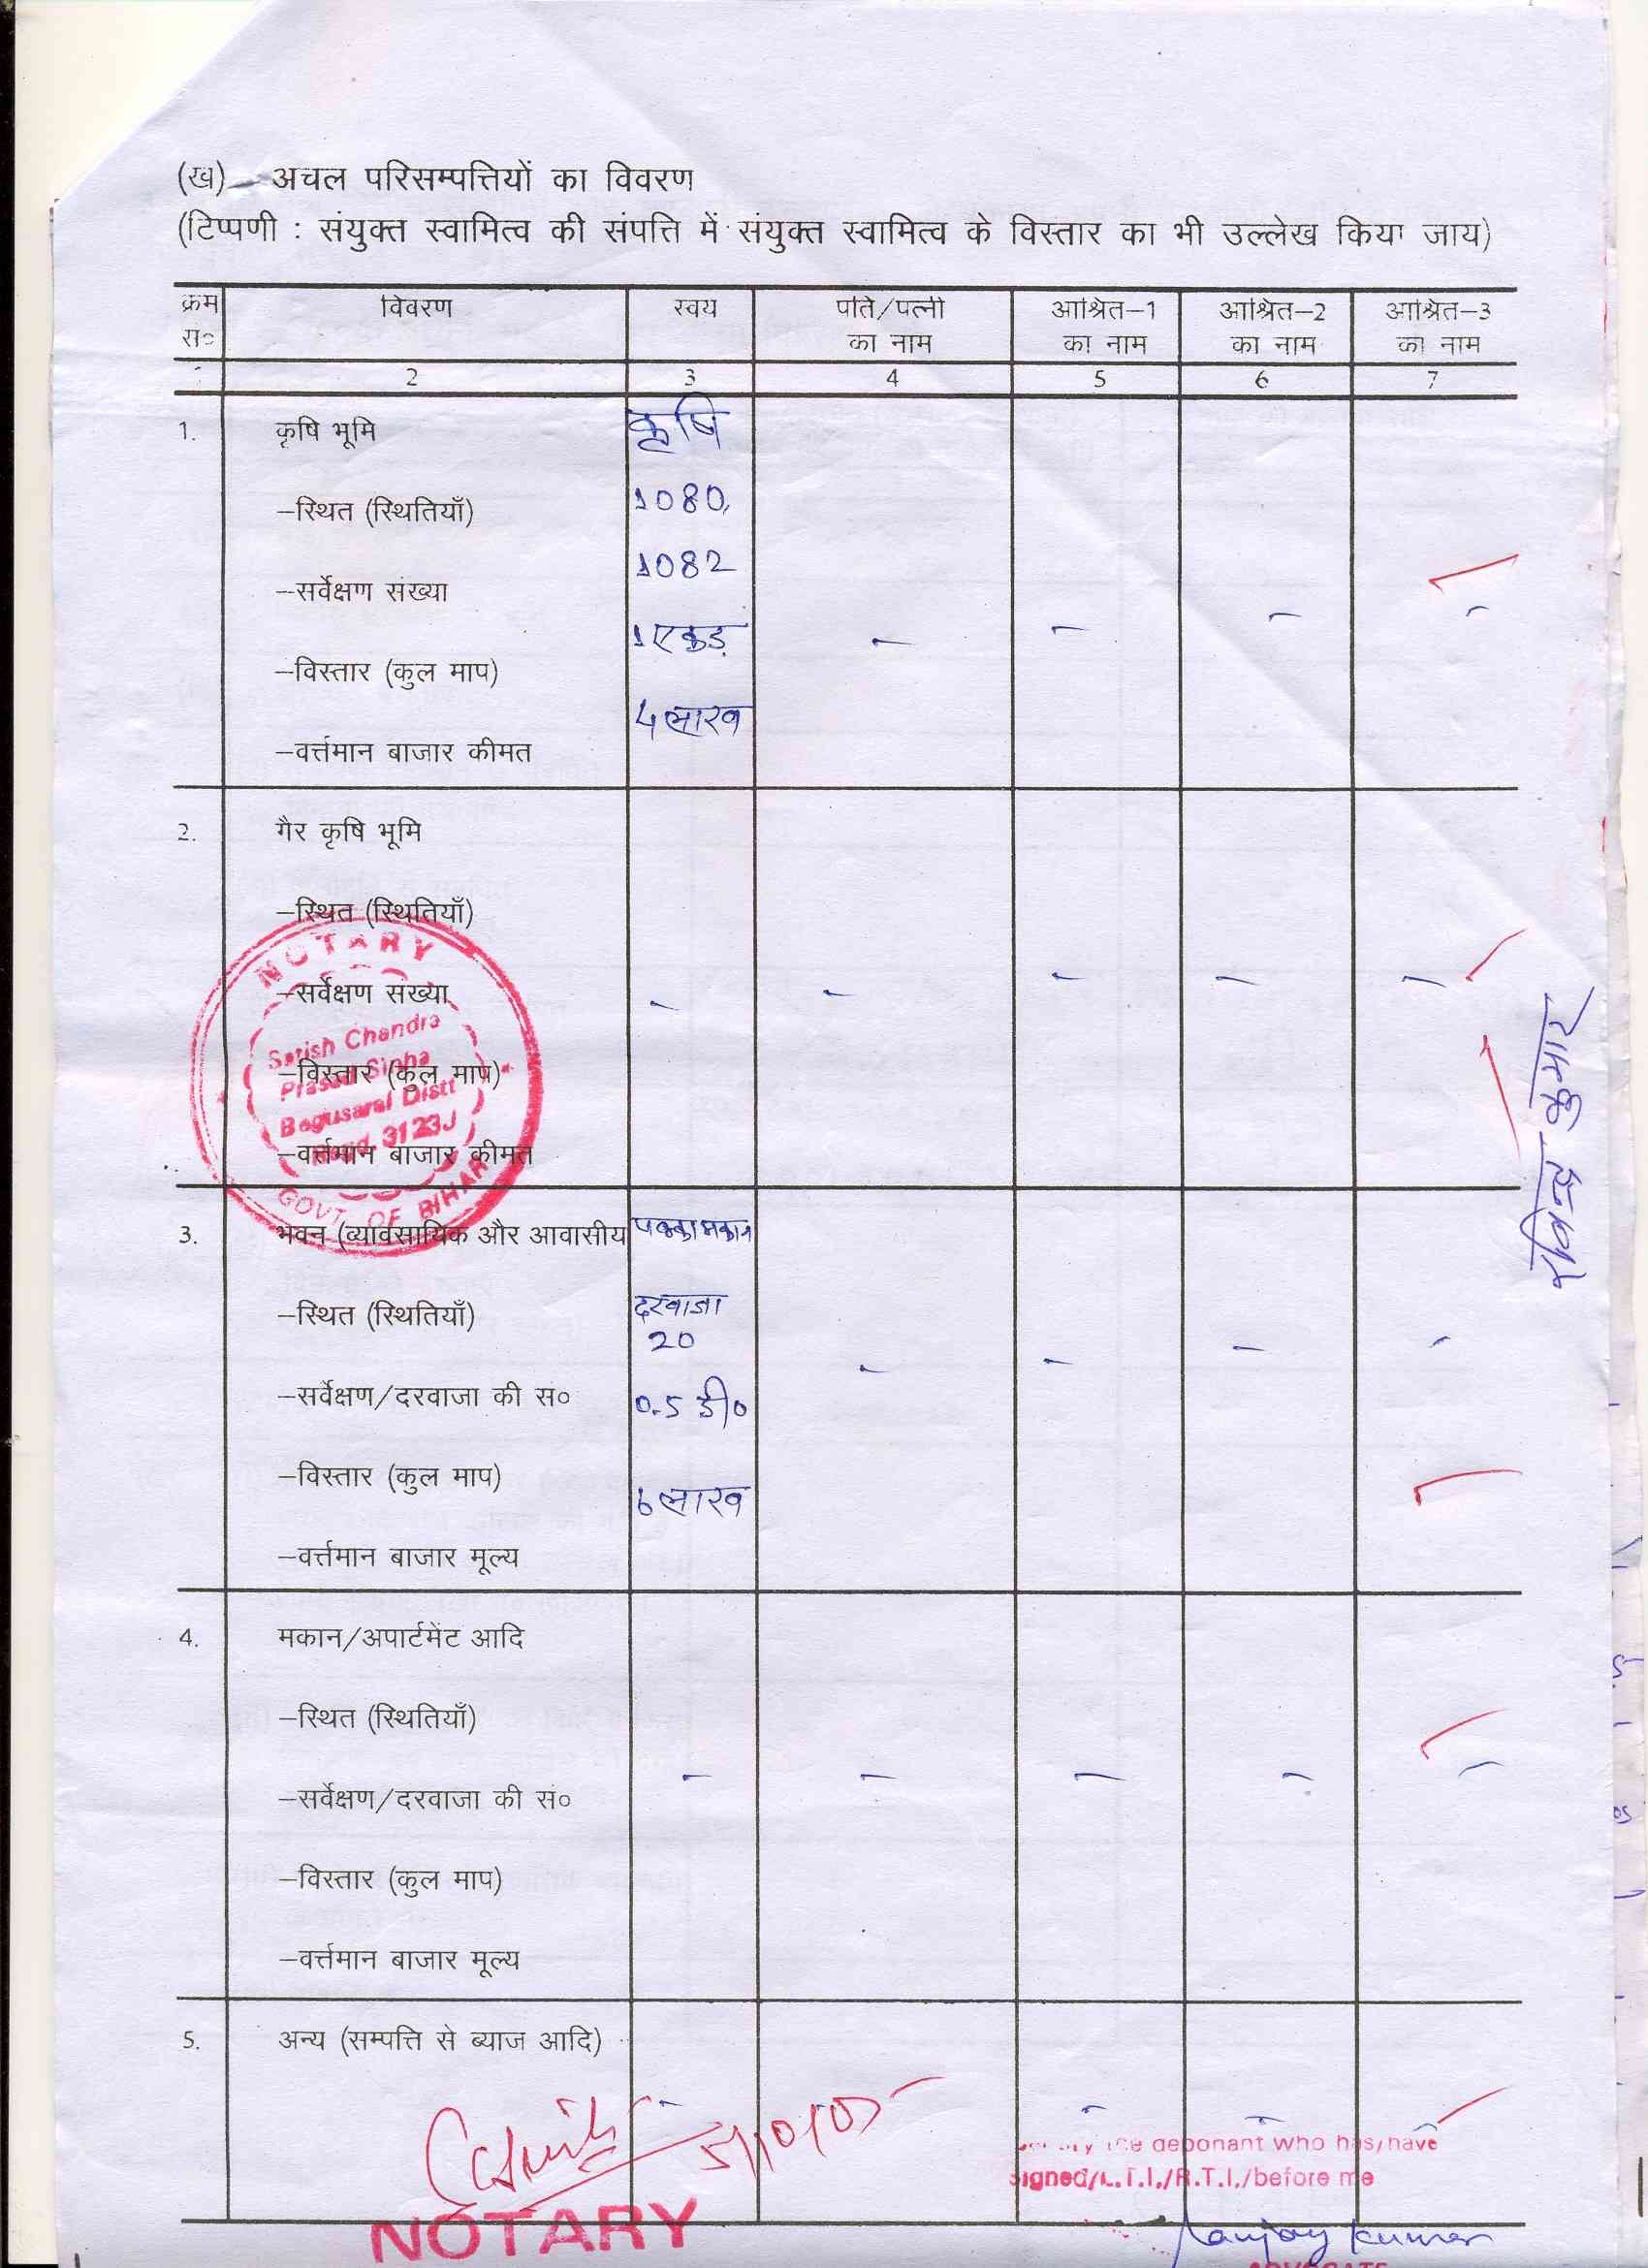 (ख) – अचल परिसम्पत्तियों का विवरण
(टिप्पणी : संयुक्त स्वामित्व की संपत्ति में संयुक्त स्वामित्व के विस्तार का भी उल्लेख किया जाय)
क्रम विवरण स्वय पति/पत्नी आश्रित–1 आश्रित–2 आश्रित–3
स० का नाम का नाम का नाम का नाम
2 3 4 5 6 7
1. कृषि भूमि कृषि
–स्थित (स्थितियाँ) 1080,
–सर्वेक्षण संख्या 1082
–विस्तार (कुल माप) 1 एकड़
–वर्त्तमान बाजार कीमत 4 लाख
2. गैर कृषि भूमि
–स्थित (स्थितियाँ)
NOTARY
–सर्वेक्षण संख्या
Satish Chandra
–विस्तार (कुल माप)
Prasad Sinha
Begusarai Distt
3123J
–वर्त्तमान बाजार कीमत
GOVT. OF BIHAR
रविन्द्र कुमार
3. भवन (व्यावसायिक और आवासीय पक्का मकान
–स्थित (स्थितियाँ) दरवाजा
20
–सर्वेक्षण/दरवाजा की स० 0.5 डी०
–विस्तार (कुल माप) 6 लाख
–वर्त्तमान बाजार मूल्य
4. मकान/अपार्टमेंट आदि
–स्थित (स्थितियाँ)
–सर्वेक्षण/दरवाजा की सं०
–विस्तार (कुल माप)
–वर्त्तमान बाजार मूल्य
5. अन्य (सम्पत्ति से ब्याज आदि)
5/10/05
the deponant who has/have
signed/L.T.I./R.T.I./before me
NOTARY
Sanjay Kumar
ADVOCATE